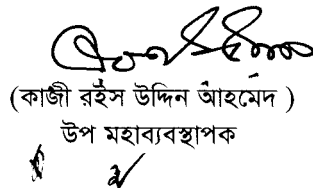 (কাজী রইস উদ্দিন আহমেদ )
উপ মহাব্যবস্থাপক